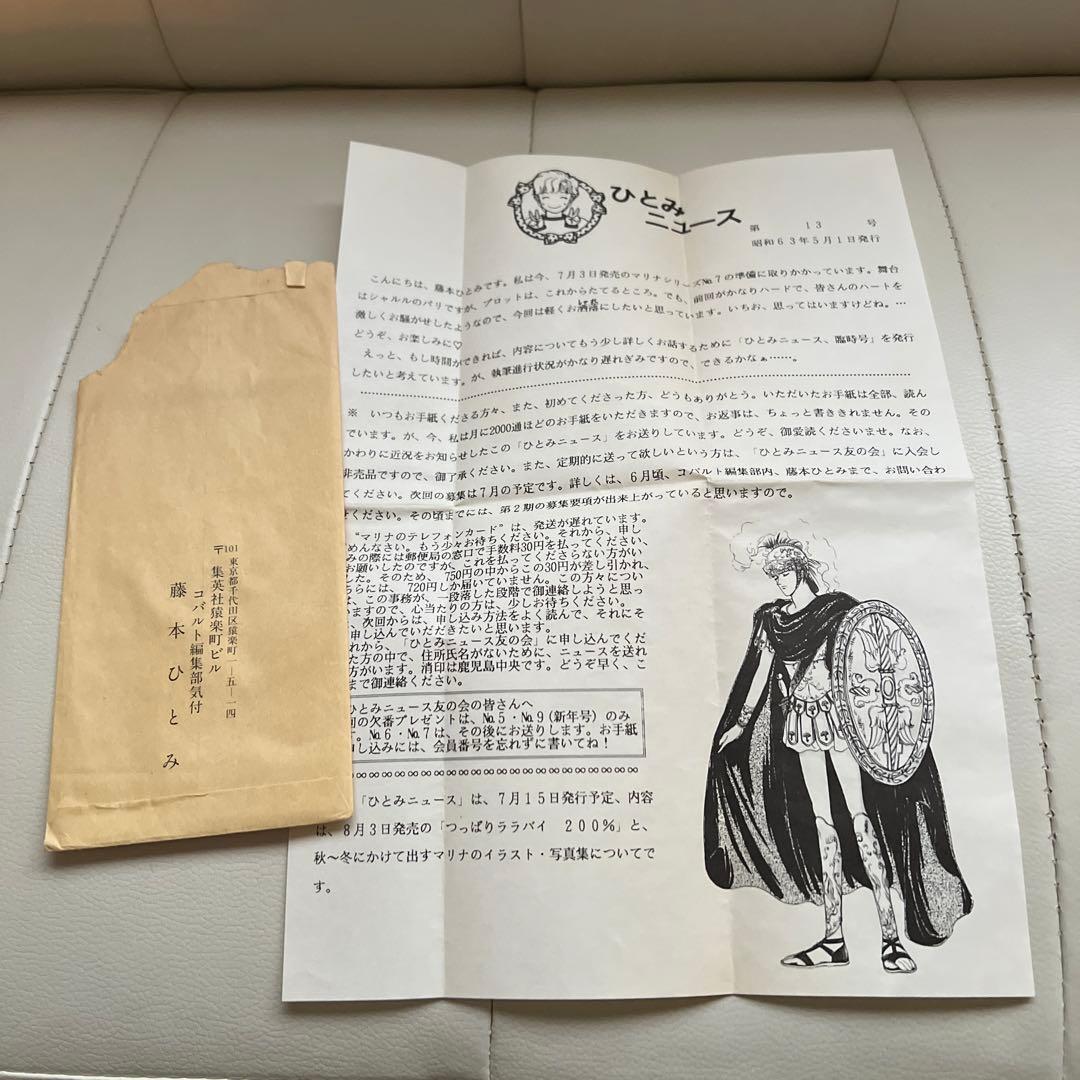 ひとみ
ニュース
第 13 号
昭和63年5月1日発行
こんにちは、藤本ひとみです。私は今、7月3日発売のマリナシリーズ№7の準備に取りかかっています。舞台
はシャルルのパリですが、プロットは、これからたてるところ。でも、前回がかなりハードで、皆さんのハートを
激しくお騒がせしたようなので、今回は軽くお洒落にしたいと思っています。いちお、思ってはいますけどね。…
どうぞ、お楽しみに♡
えっと、もし時間ができれば、内容についてもう少し詳しくお話するために「ひとみニュース、臨時号」を発行
したいと考えています。が、執筆進行状況がかなり遅れぎみですので、できるかなぁ……。
※ いつもお手紙くださる方々、また、初めてくださった方、どうもありがとう。いただいたお手紙は全部、読ん
でいます。が、今、私は月に2000通ほどのお手紙をいただきますので、お返事は、ちょっと書ききれません。その
かわりに近況をお知らせしたこの「ひとみニュース」をお送りしています。どうぞ、御愛読くださいませ。なお、
非売品ですので、御了承ください。また、定期的に送って欲しいという方は、「ひとみニュース友の会」に入会し
てください。次回の募集は7月の予定です。詳しくは、6月頃、コバルト編集部内、藤本ひとみまで、お問い合わ
ください。その頃までには、第2期の募集要項が出来上がっていると思いますので。
“マリナのテレフォンカード”は、発送が遅れています。
めんなさい。もう少々お待ちください。それから、申し
みの際には郵便局の窓口で手数料30円を払ってください、
お願いしたのですが、これを払ってくださらない方がい
した。そのため、750円の中からこの30円が差し引かれ、
ちらには、720円しか届いていません。この方々につい
は、この事務が、一段落した段階で御連絡しようと思っ
いますので、心当たりの方は、少しお待ちください。
、次回からは、申し込み方法をよく読んで、それにそ
申し込んでいただきたいと思います。
れから、「ひとみニュース友の会」に申し込んでくだ
た方の中で、住所氏名がないために、ニュースを送れ
方がいます。消印は鹿児島中央です。どうぞ早く、こ
まで御連絡ください。
ひとみニュース友の会の皆さんへ
回の欠番プレゼントは、№5・№9(新年号)のみ
す。№6・№7は、その後にお送りします。お手紙
申し込みには、会員番号を忘れずに書いてね！
「ひとみニュース」は、7月15日発行予定、内容
は、8月3日発売の「つっぱりララバイ 200%」と、
秋〜冬にかけて出すマリナのイラスト・写真集についてで
す。
〒101 東京都千代田区猿楽町一－五－一四
集英社猿楽町ビル
コバルト編集部気付
藤本ひとみ